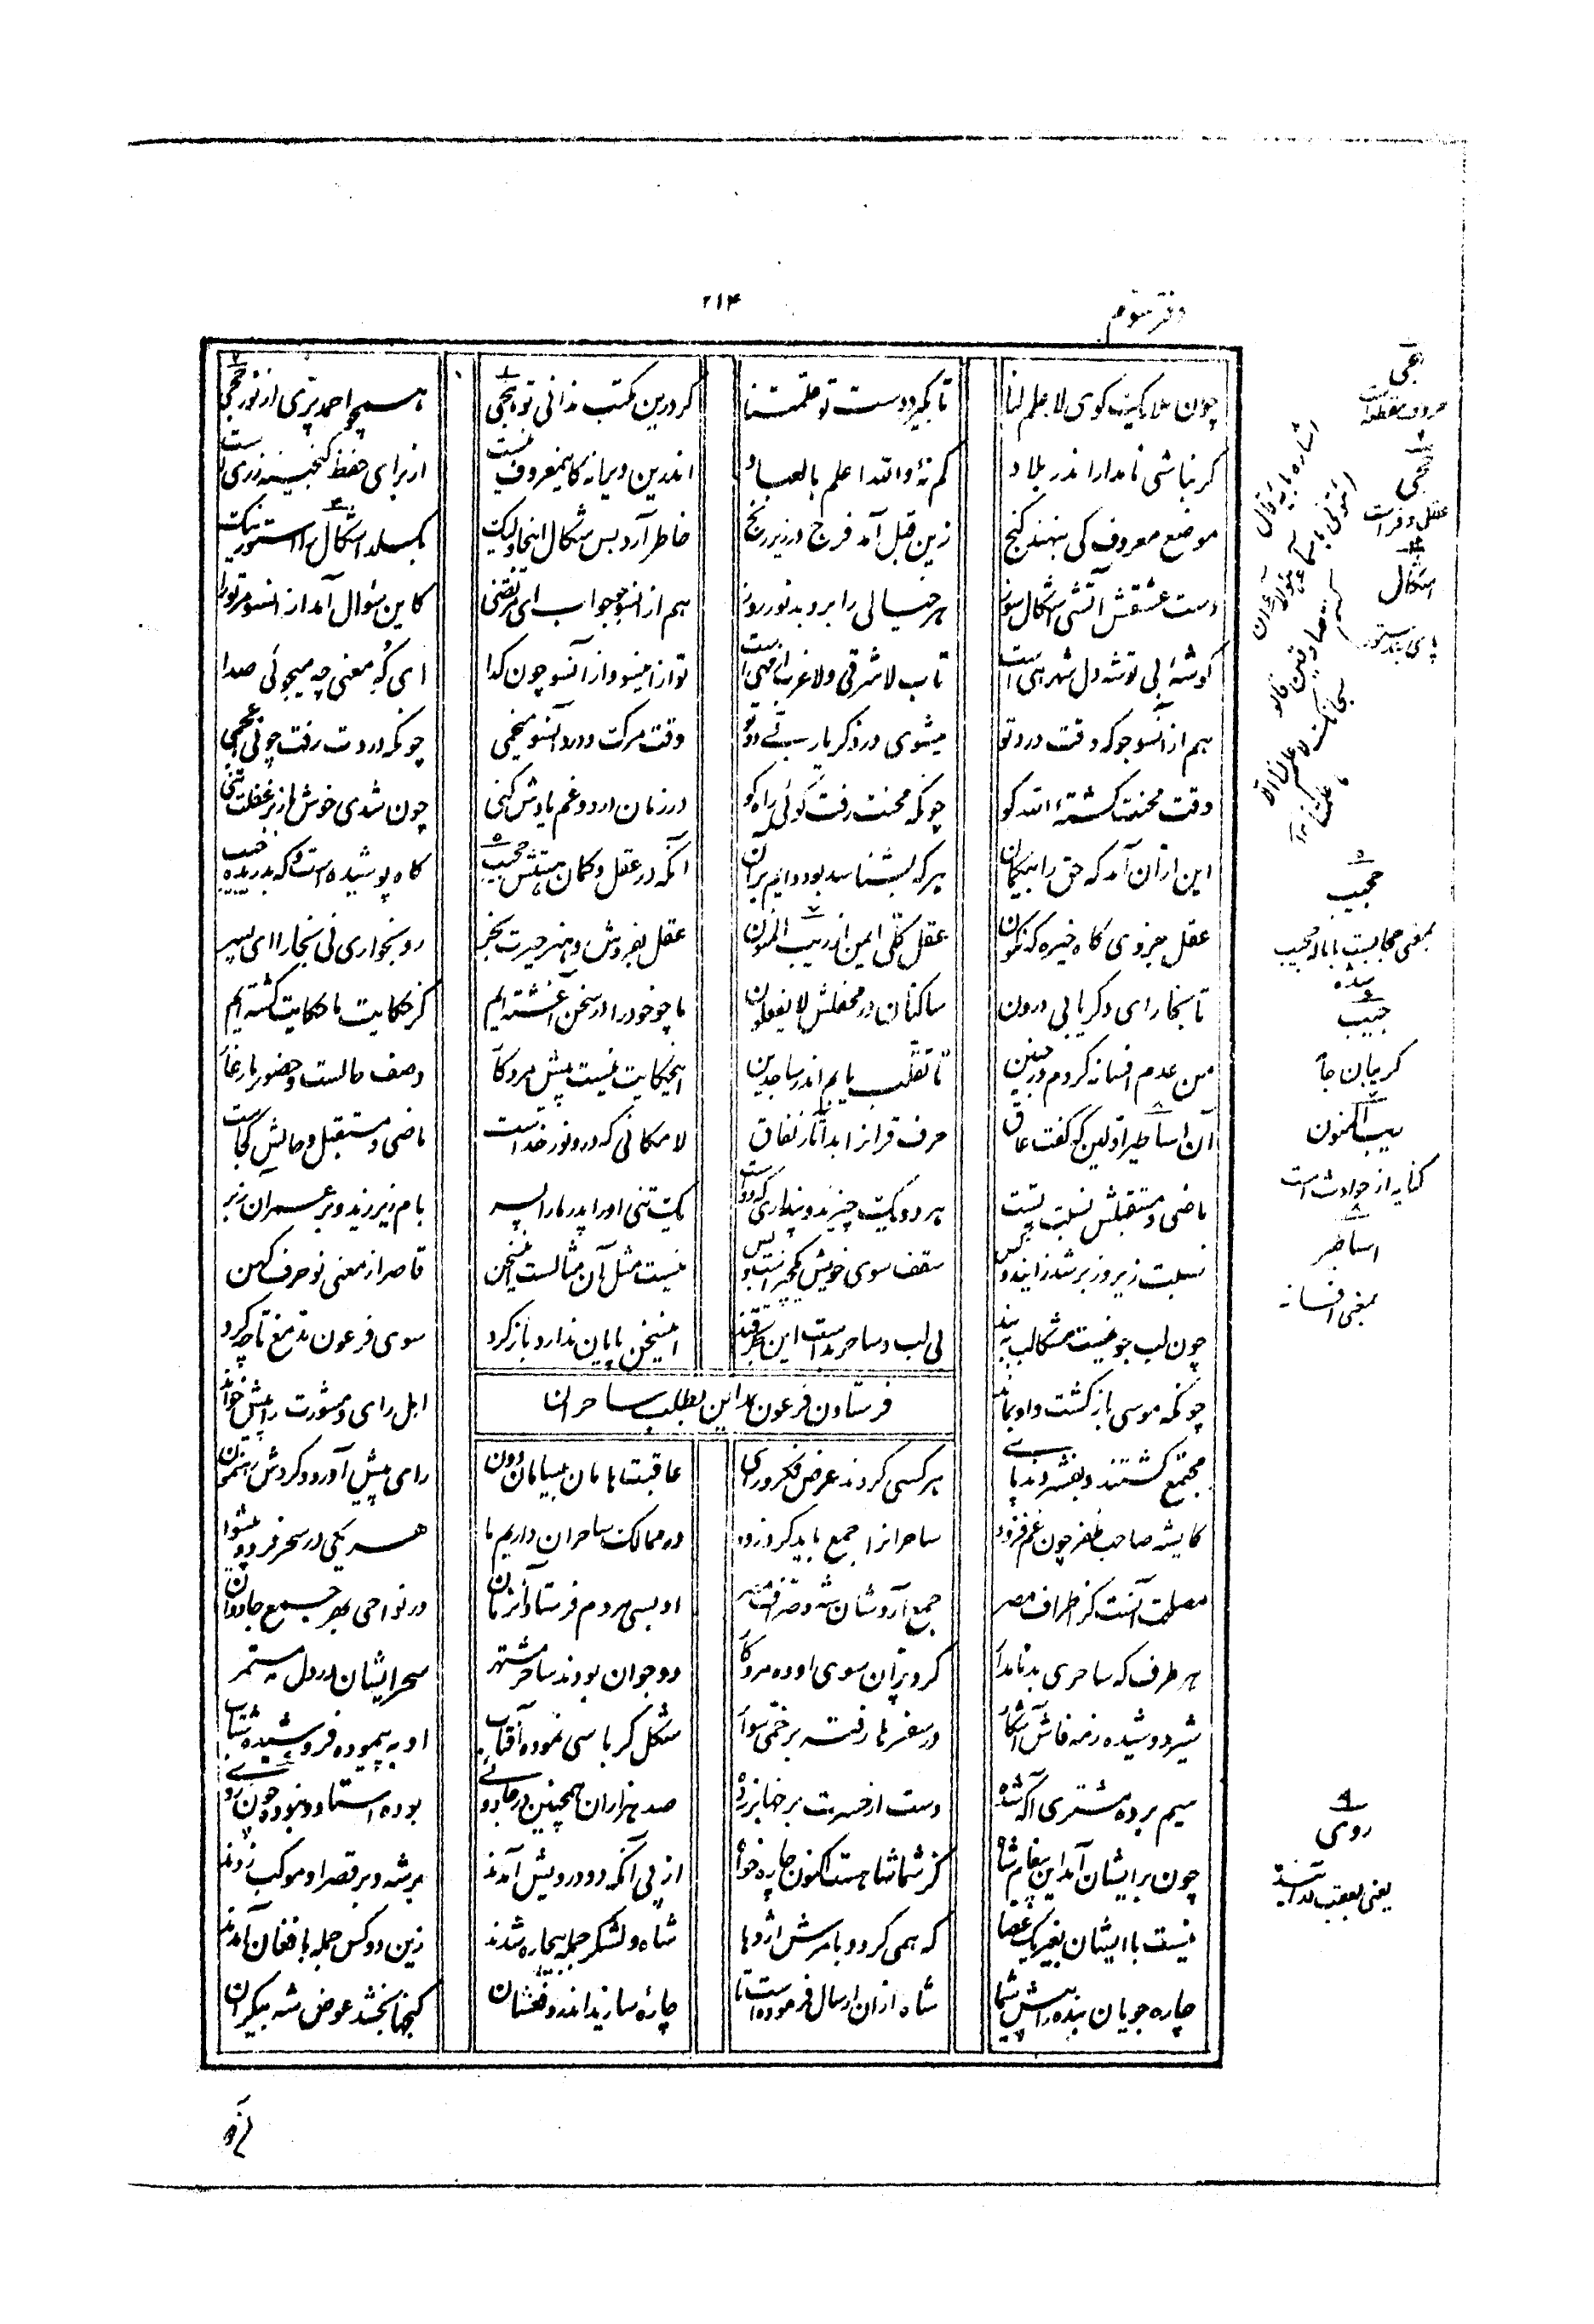 دفتر سوم
۲۱۴
چون ملایک گوی لا علم لنا تا بگیرد دست تو علمتنا گر درین مکتب ندانی تو هجی همچو احمد پری از نور حجی
گر نباشی نامدار اندر بلاد گم نهٔ والله اعلم بالعباد اندرین ویرانه کان معروف نیست از برای حفظ گنجینه زریست
موضع معروف کی بنهند گنج زین قبل آمد فرج در زیر رنج خاطر آرد بس شکال اینجا ولیک بگسلد اشکال را استور نیک
دست عشقش آتشی اشکال سوز هر خیالی را بروبد نور روز هم از انسو جو جواب ای مرتضی کاین سئوال آمد از انسو مر ترا
گوشهٔ بی گوشه دل شهرهی است تاب لا شرقی ولا غرب از مهی است تو ازاینسو و ازانسو چون گدا ای که معنی چه میجوئی صدا
هم ازآنسو جو که وقت درد تو میشوی در ذکر یا ربی دو تو وقت مرگ و درد آنسو میخمی چونکه دردت رفت چونی اعجمی
وقت محنت گشتهٔ الله گو چونکه محنت رفت گوئی راه کو در زمان درد و غم یادش کنی چون شدی خوش باز بر غفلت تنی
این ازآن آمد که حق را بیگمان هر که بشناسد بود دایم بر آن آنکه در عقل و گمان هستش حجیب گاه پوشیده است و گه بدریده جیب
عقل جزوی گاه خیره گه نگون عقل کلی ایمن از ریب المنون عقل بفروش و هنر حیرت بخر رو بخواری نی بخارا ای پسر
تا بخارای دگر یابی درون ساکنان در محفلش لا یفقهون ما چو خود را در سخن آغشته ایم کز حکایت ما حکایت گشته ایم
من عدم افسانه گردم در حنین تا تقلب یابم اندر ساجدین اینحکایت نیست پیش مرد کار وصف حالست و حضور یار غار
آن اساطیر اولین که گفت عاق حرف قرانرا بد آثار نفاق لامکانی که درو نور خداست ماضی و مستقبل و حالش کجاست
ماضی و مستقبلش نسبت بتست هر دو یک چیزند و پنداری که دوست یک تنی او را پدر ما را پسر بام زیر زید و بر عمر آن زبر
نسبت زیر و زبر شد زاین دو کس سقف سوی خویش یکچیز است و بس نیست مثل آن مثالست این سخن قاصر از معنی نو حرف کهن
چون لب جو نیست مشکا لب ببند بی لب و ساحل بداست این بحر قند این سخن پایان ندارد باز گرد سوی فرعون مدمغ تا چه کرد
فرستادن فرعون بمداین بطلب ساحران
چونکه موسی بازگشت و او بماند اهل رای و مشورت را پیش خواند
مجتمع گشتند و بفشردند پای هر کسی کردند عرض فکر و رای عاقبت هامان بیسامان دون رای پیش آورد و کردش رهنمون
کایشه صاحب ظفر چون غم فزود ساحرانرا جمع باید کرد زود در ممالک ساحران داریم ما هر یکی در سحر فرد و پیشوا
مصلحت آنست کز اطراف مصر جمع آردشان شه و صراف مصر او بسی مردم فرستاد آنزمان در نواحی بهر جمع جادوان
هر طرف که ساحری بد نامدار کرد پران سوی او ده مرد کار دو جوان بودند ساحر مشتهر سحر ایشان در دل مه مستمر
شیر دوشیده ز مه فاش آشکار در سفرها رفته بر خمی سوار شکل کرباسی نموده آفتاب او به پیموده فروشیده شتاب
سیم برده مشتری آگه شده دست از حسرت برخها بر زده صد هزاران همچنین در جادوئی بوده استاد و نبوده چون روی
چون برایشان آمد این پیغام شاه کز شما شاهست اکنون چاره خواه از پی آنکه دو درویش آمدند بر شه و بر قصر او موکب زدند
نیست با ایشان بغیر یک عصا که همی گردد بامرش اژدها شاه و لشکر جمله بیچاره شدند زین دو کس جمله بافغان آمدند
چاره جویان بنده را پیش شما شاه ازان ارسال فرموده است تا چارهٔ سازید اندر دفعشان گنجها بخشد عوض شه بیکران
هجی
حروف مقطعه است
حجی
عقل و فراست
اشکال
پای بند ستور
حجیب
بمعنی حجابست باماله حجیب شده
جیب
گریبان جامه
ریب المنون
کنایه از حوادث است
اساطیر
بمعنی افسانه
روی